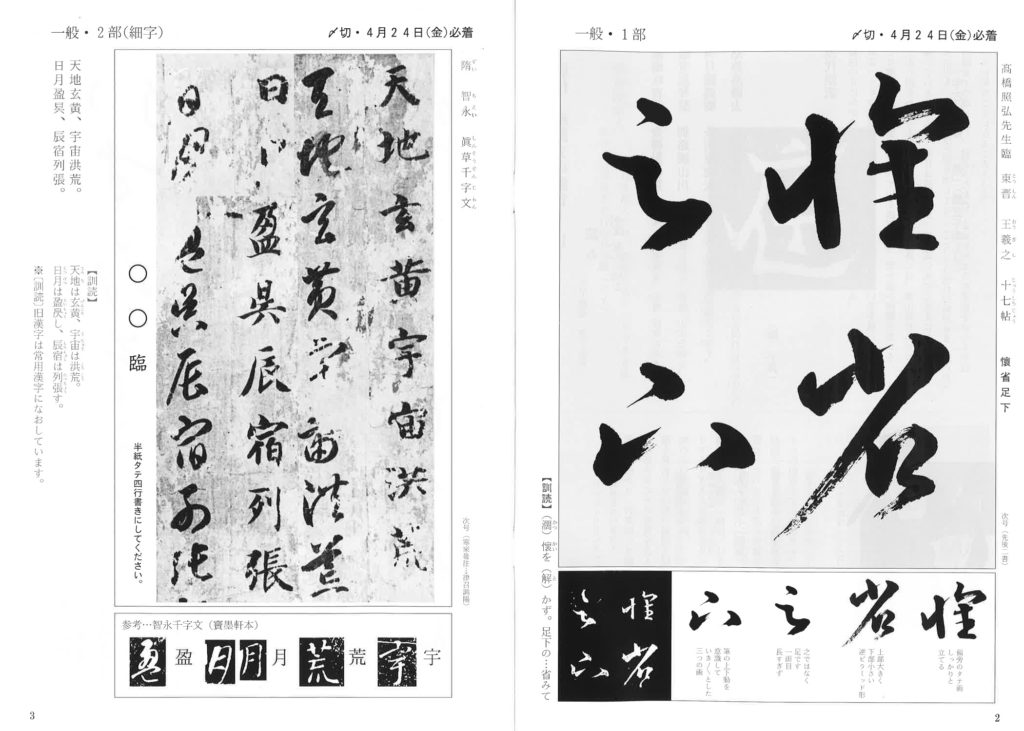 一般・1部
〆切・4月24日(金)必着
高橋照弘先生臨 東晋 王羲之 十七帖 懐省足下
懐省
足下
次号(先後二書)
懐
省
足
下
偏旁のタテ画
しっかりと
立てる
上部大きく
下部小さい
逆ピラミッド形
之ではなく
足です
一画目
長すぎず
筆の上下動を
意識して
いきいきとした
三つの画
【訓読】(渇)懐を(解)かず。足下の…省みて
2
一般・2部(細字)
〆切・4月24日(金)必着
隋 智永 眞草千字文
天地玄黄宇宙洪荒
天地玄黄宇宙洪荒
日月盈昃辰宿列張
日月盈昃辰宿列張
次号(寒来暑往…律召調陽)
〇〇臨
半紙タテ四行書きにしてください。
天地玄黄、宇宙洪荒。
日月盈昃、辰宿列張。
【訓読】
天地は玄黄、宇宙は洪荒。
日月は盈昃し、辰宿は列張す。
※[訓読]旧漢字は常用漢字になおしています。
参考…智永千字文(寶墨軒本)
宇
荒
月
盈
3